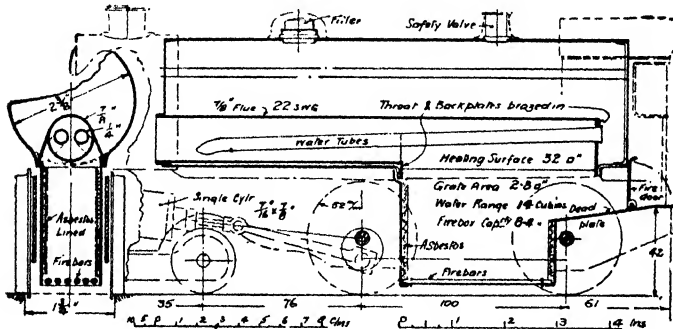 Filler
Safety Valve
2 1/2"
7/8"
1/4"
7/8" Flue 22 SWG
Throat & Backplates brazed in
Water Tubes
Heating Surface 32 □"
Grate Area 2·8 □"
Water Range 14 Cubins
Firebox Cap'ty 8·4 "
Dead plate
Fire door
Single Cylr
7/16" x 7/8"
Asbestos Lined
Firebars
Asbestos
Firebars
42
35
76
100
61
1 2 3 4 5 6 7 8 9 Cms
0 1 2 3 4 Ins